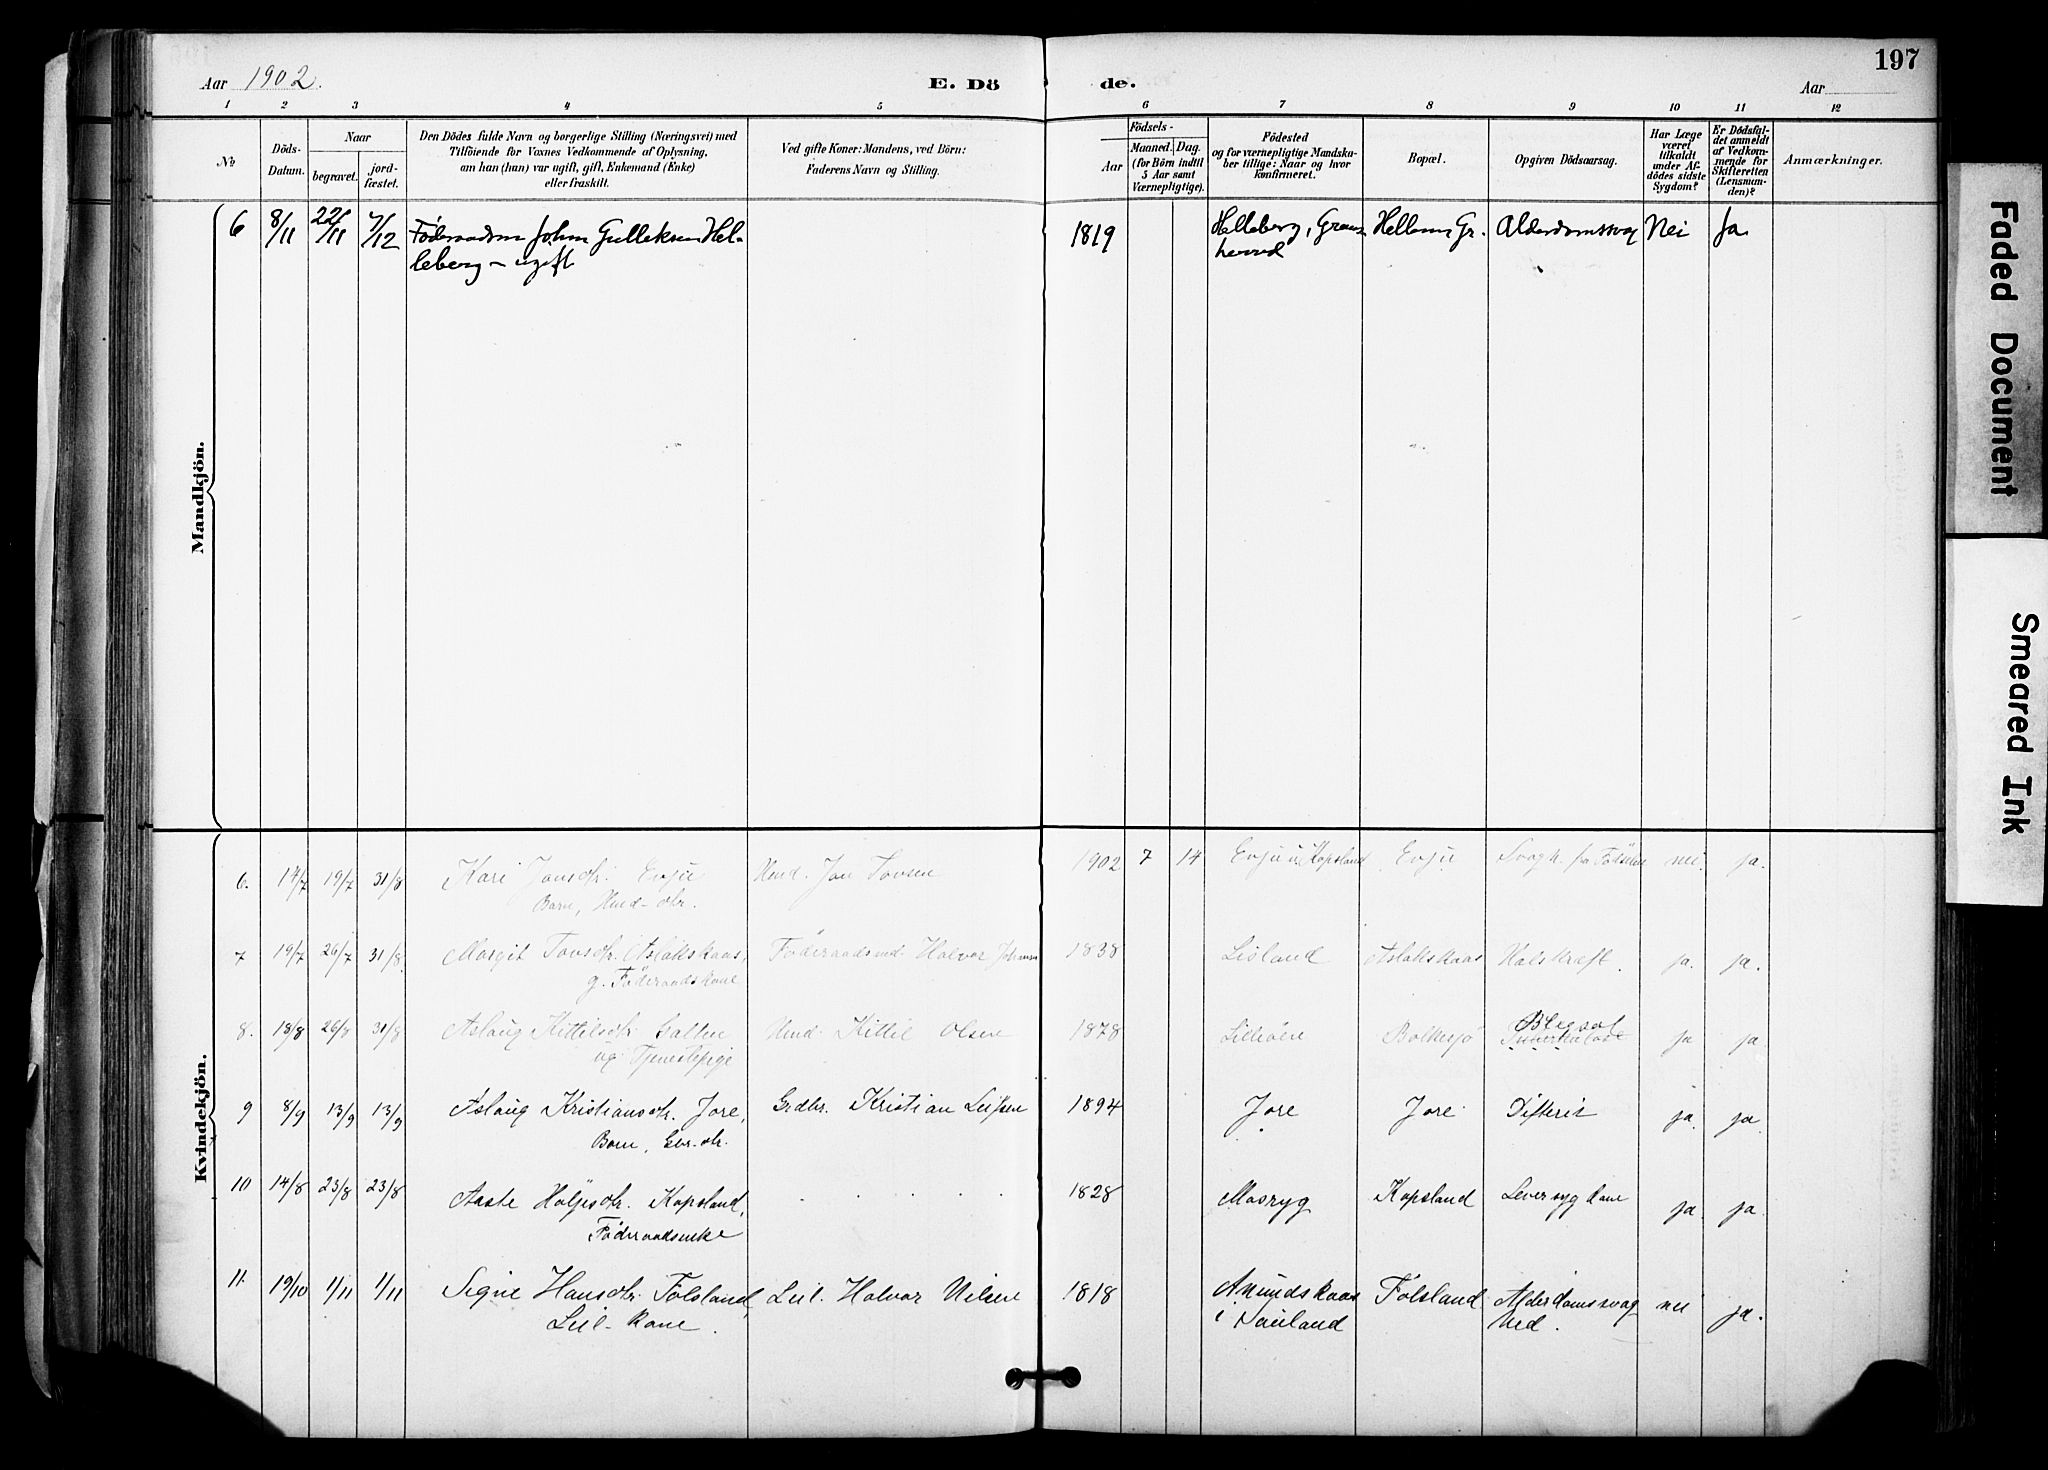 197
Aar 1902.
E. Dö
de.
Aar
1 2 3 4 5 6 7 8 9 10 11 12
No
Döds-
Datum.
Naar
begravet.
jord-
fæstet.
Den Dödes fulde Navn og borgerlige Stilling (Næringsvei) med
Tilföiende for Voxnes Vedkommende af Oplysning,
om han (hun) var ugift, gift, Enkemand (Enke)
eller fraskilt.
Ved gifte Koner: Mandens, ved Börn:
Faderens Navn og Stilling.
Födsels-
Aar
Maaned. Dag.
(for Börn indtil
5 Aar samt
Værnepligtige).
Födested
og for værnepligtige Mandska-
ber tillige: Naar og hvor
konfirmeret.
Bopæl.
Opgiven Dödsaarsag.
Har Læge
været
tilkaldt
under Af-
dödes sidste
Sygdom?
Er Dödsfal-
det anmeldt
af Vedkom-
mende for
Skifteretten
(Lensman-
den)?
Anmærkninger.
Mandkjön.
6 8/11 22/11 7/12 Föderaadsm John Gulleksen Hel- 1819 Helleberg, Grans- Hellem Gr. Alderdomssvag Nei Ja
leberg - ugift herred
Kvindekjön.
6. 14/7 19/7 31/8 Kari Jonsdtr. Evju Hmd. Jon Tovsen 1902 7 14 Evju u. Kopsland Evju Svagh. fra Födselen nei ja.
Barn, Hmd-dtr.
7 19/7 26/7 31/8. Margit Tovsdtr. Aslakskaas, Föderaadsmd. Halvor Johnsen 1838 Lisland Aslakskaas Halskræft. ja. ja.
g. Föderaadskone
8. 18/8 26/8 31/8 Aslaug Kittilsdtr. Hmd. Kittil Olsen 1878 Bolkesjö Blegsot ja ja.
ug. Tjenestepige
9 8/9 13/9 13/9 Aslaug Kristiansdtr. Jore, Grdbr. Kristian Leifsen 1894 Jore Jore Difterit ja. ja.
Barn, Gbr.-dtr.
10 14/8 23/8 23/8 Aaste Höljesdtr. Kopsland, 1828 Mosryg Kopsland Leversygdom ja. ja.
Föderaadsenke
11. 19/10 1/11 1/11 Signe Hansdtr. Folsland, Leil. Halvor Nilsen 1818 Amundskaas Folsland Alderdomssvag nei ja.
Leil-kone. i Hauland hed.
Faded Document
Smeared Ink